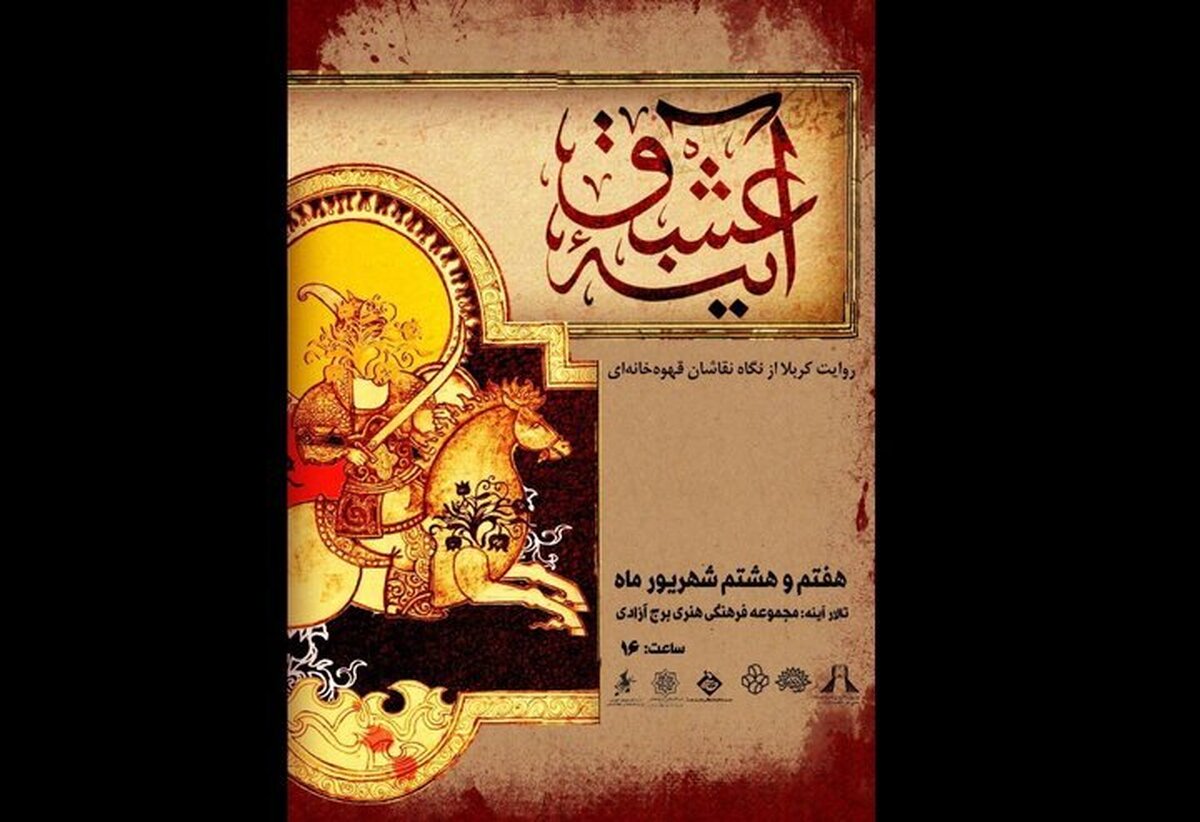 آینهٔ عشاق
روایت کربلا از نگاه نقاشان قهوه‌خانه‌ای
هفتم و هشتم شهریور ماه
تالار آینه: مجموعه فرهنگی هنری برج آزادی
ساعت: ۱۶